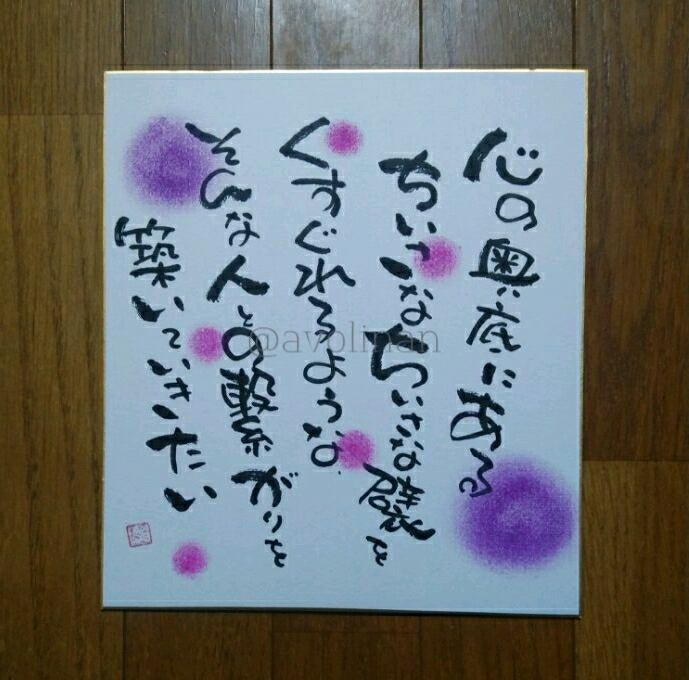 心の奥底にある
ちいさなちいさな を
くすぐれるような
そんな人との繋がりを
築いていきたい
@avolinan